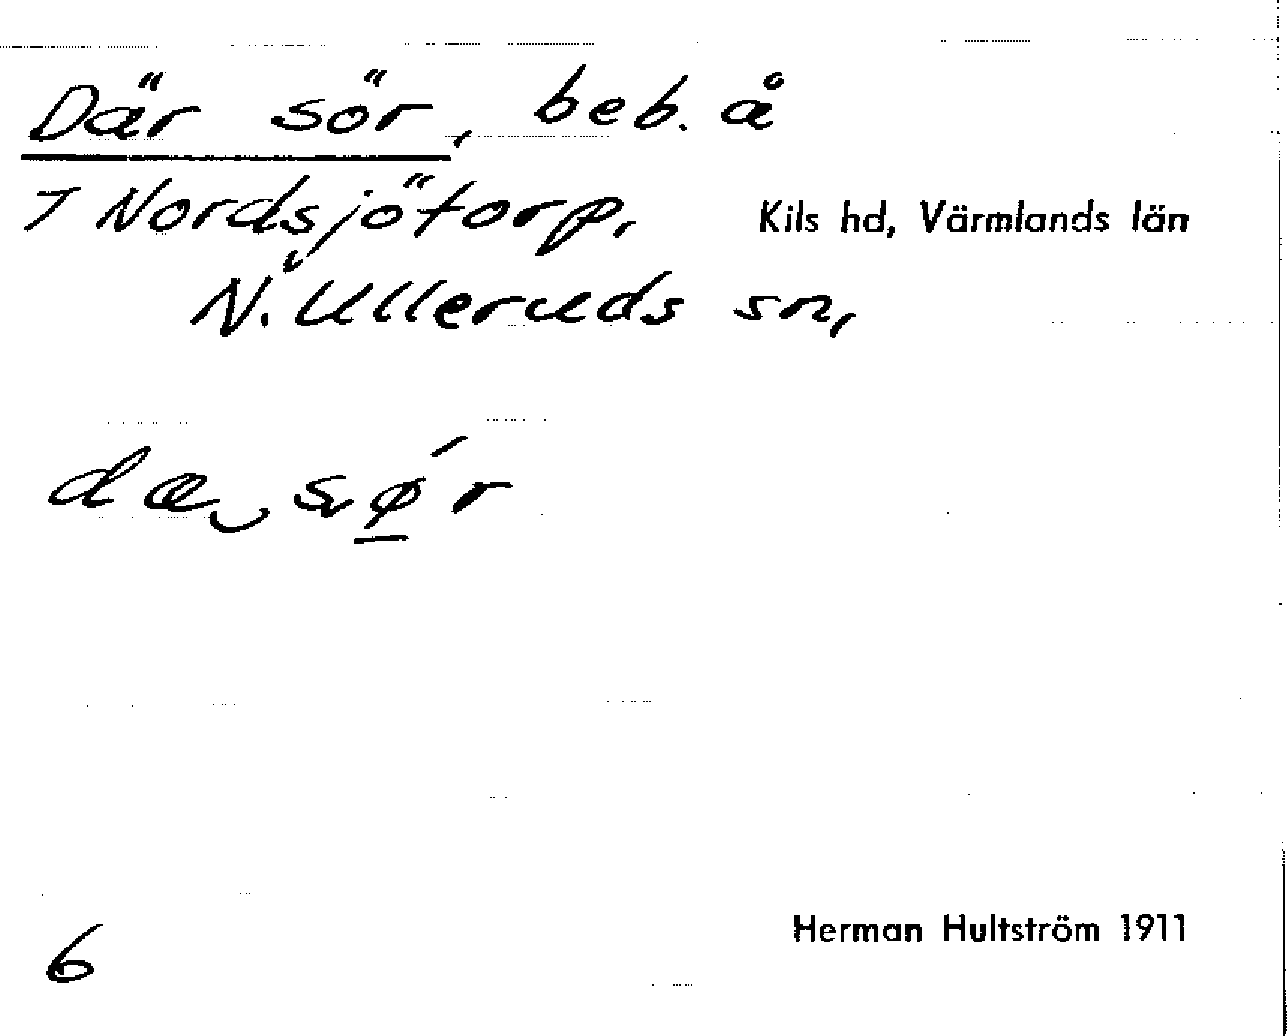 Där sör, beb. å
7 Nordsjötorp, Kils hd, Värmlands län
N. Ulleruds sn,
dæ‿sǿ̠r
6
Herman Hultström 1911